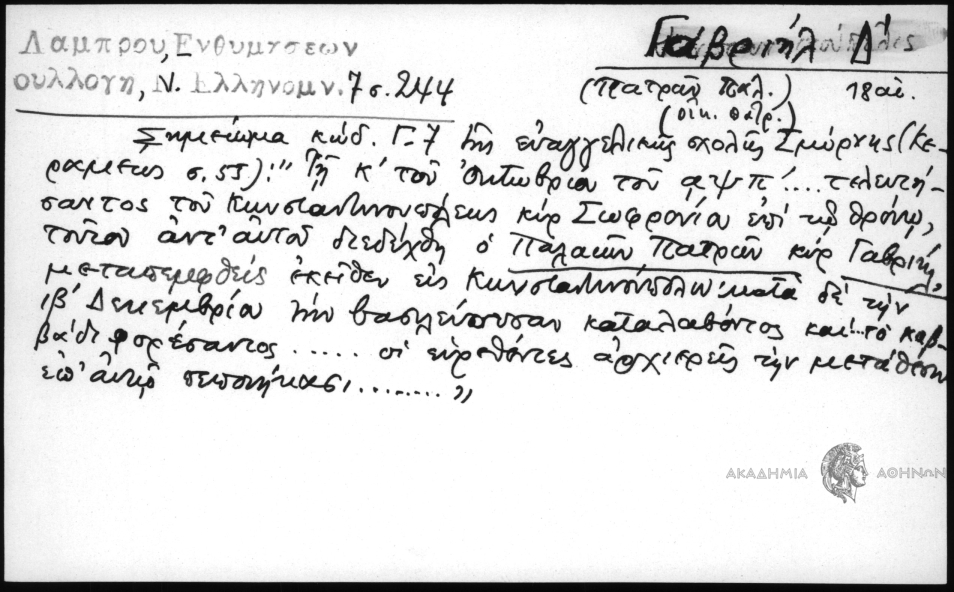 Λαμπρου, Ενθυμησεων
συλλογη, Ν. Ελληνομν. 7 σ. 244
Γαβριήλ Δ'
(Πατρῶν Παλ.) 18 αἰ.
(οἰκ. πατρ.)
Σημείωμα κώδ. Γ-7 τῆς εὐαγγελικῆς σχολῆς Σμύρνης (Κε-
ραμεως σ. 55): "Τῇ κ' τοῦ Ὀκτωβρίου τοῦ αψπ'.... τελευτή-
σαντος τοῦ Κωνσταντινουπόλεως κύρ Σωφρονίου ἐπί τῷ θρόνῳ,
τούτου ἀντ' αὐτοῦ διεδέχθη ὁ Παλαιῶν Πατρῶν κύρ Γαβριήλ,
μεταπεμφθείς ἐκεῖθεν εἰς Κωνσταντινούπολιν· κατά δέ τήν
ιβ' Δεκεμβρίου τήν βασιλεύουσαν καταλαβόντος καί... τό καβ-
βάδι φορέσαντος ..... οἱ εὑρεθέντες ἀρχιερεῖς τήν μετάθεσιν
ἐπ' αὐτῷ πεποιήκασι.........."
ΑΚΑΔΗΜΙΑ ΑΘΗΝΩΝ